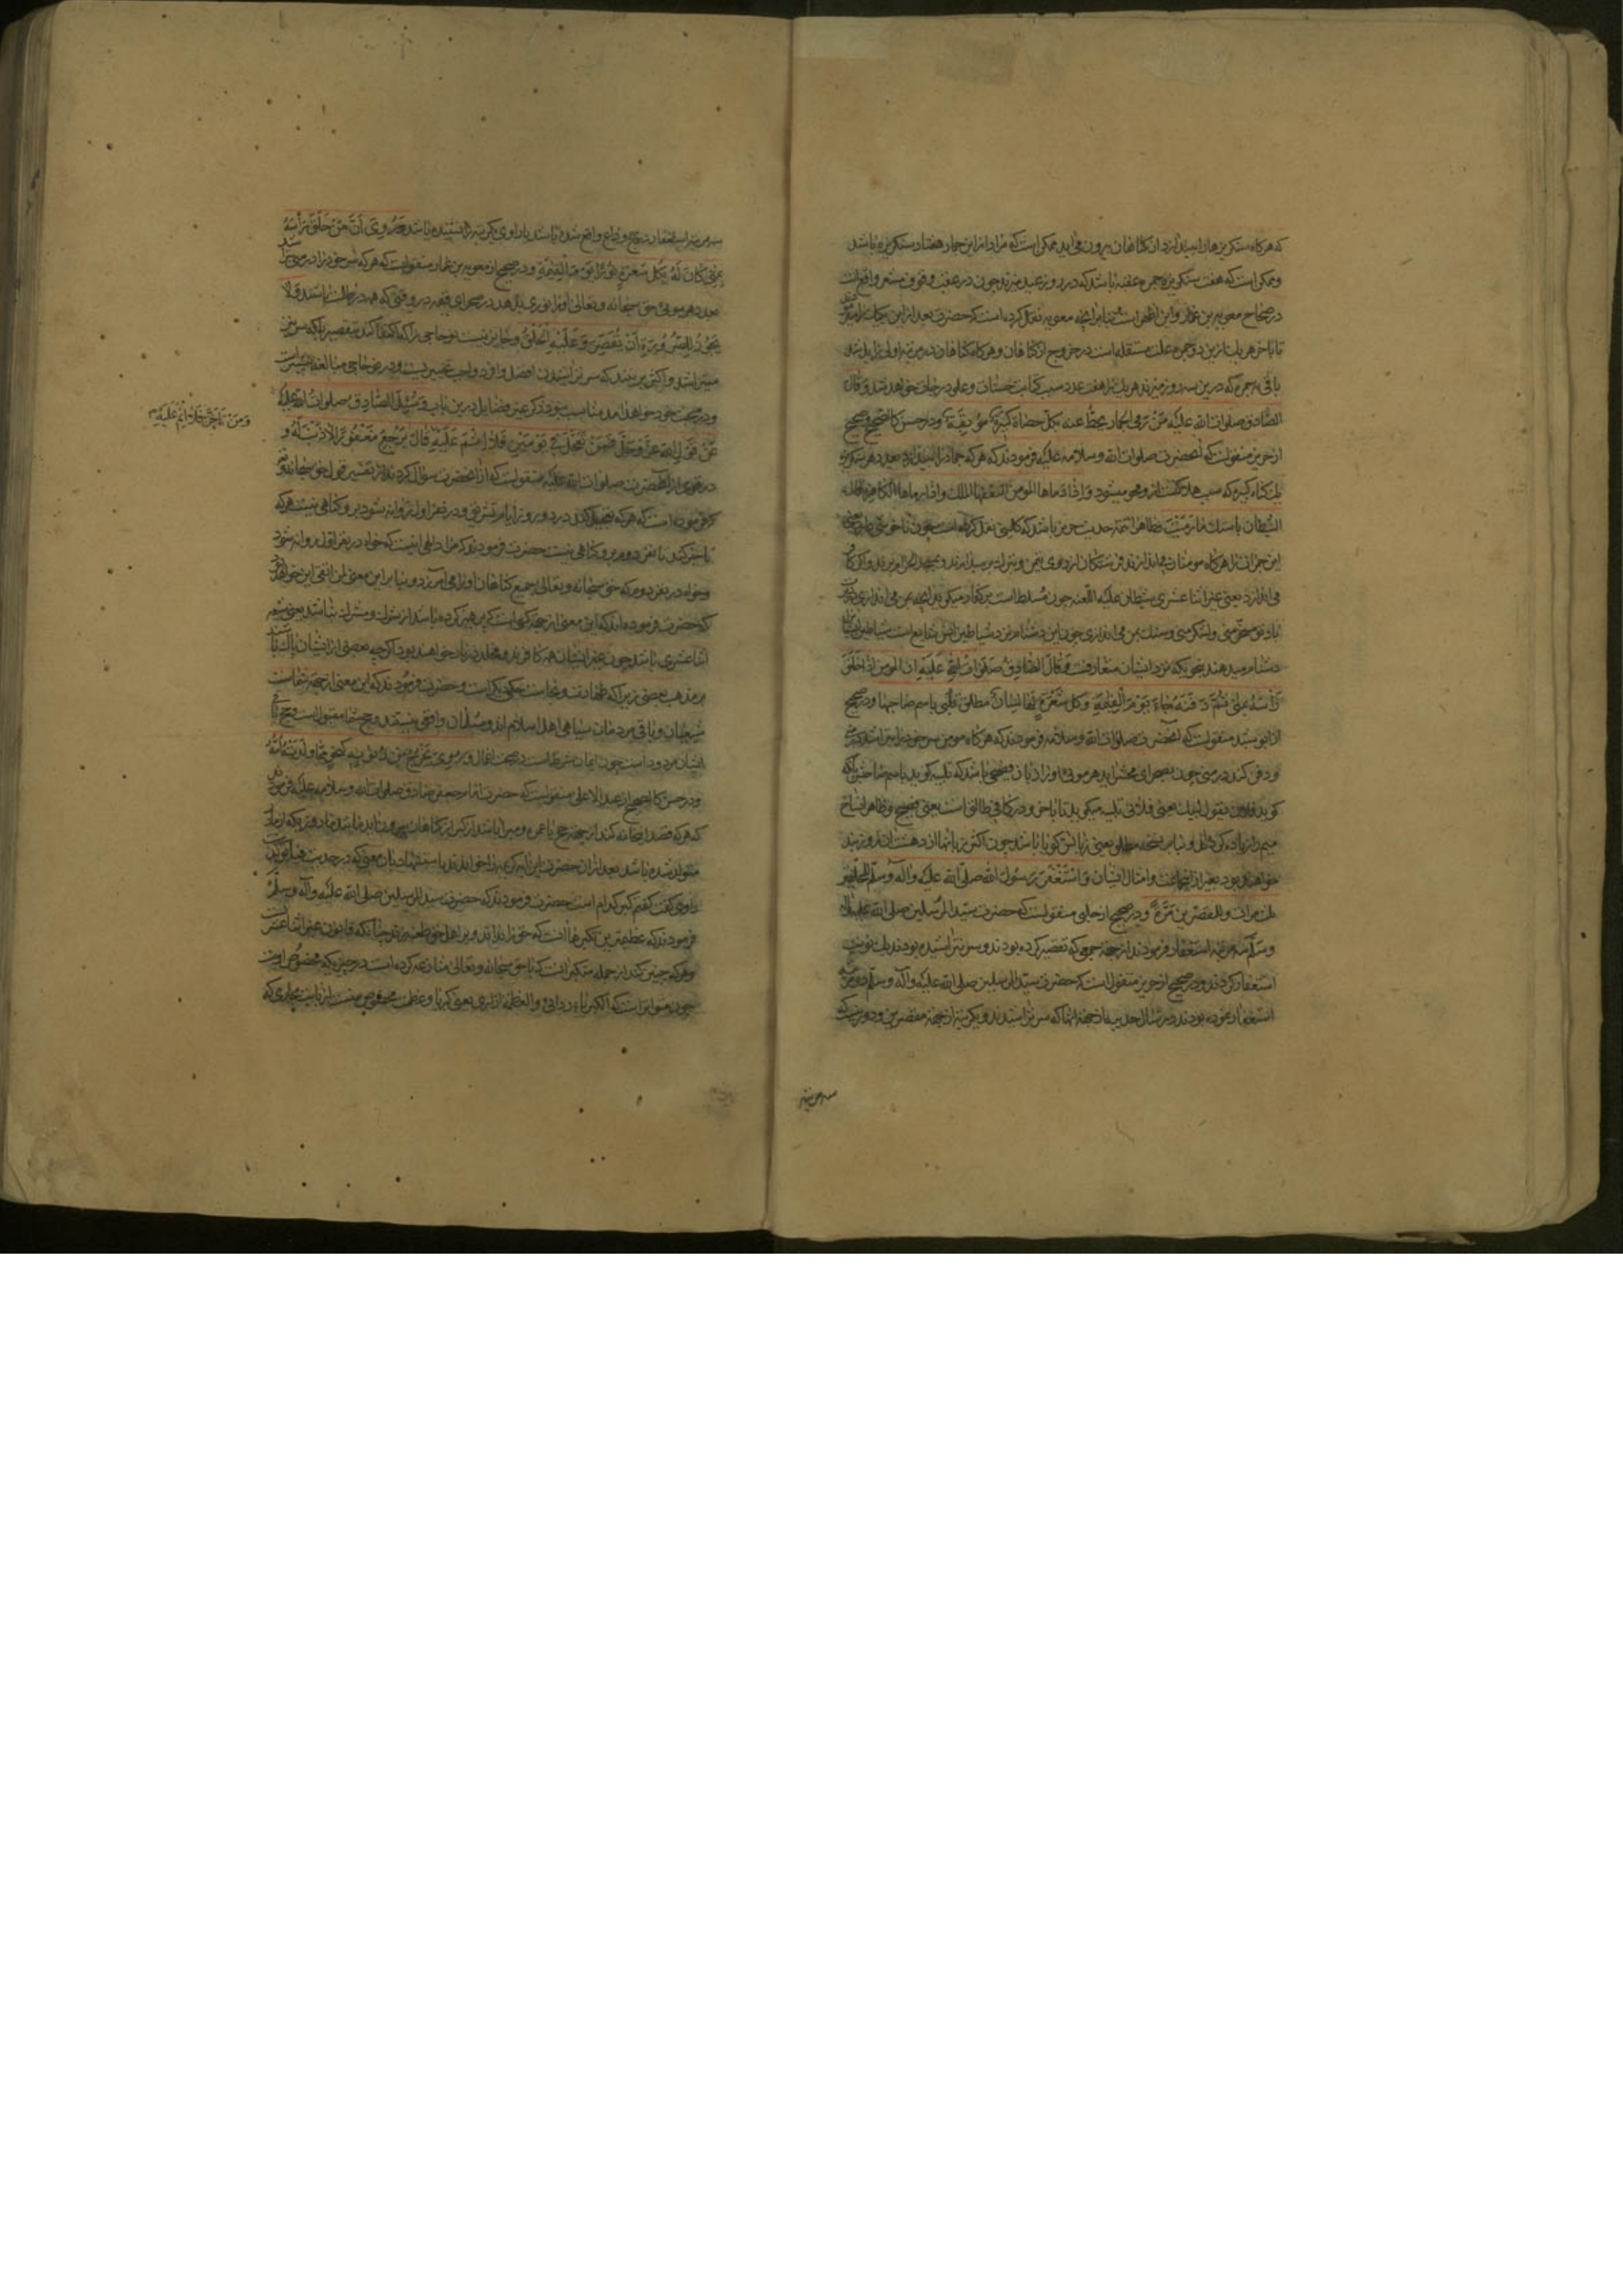 که هرگاه سنکریزها را بیندازد از کناهان بیرون می اید ممکن است که مراد از این جمار هفتاد سنکریزه باشد
و ممکن است که هفت سنکریزه جمره عقبه باشد که در روز عید میزند چون در عقب وقوف مشعر واقع است
در صحاح معویه بن عمار و این اظهر است بنا بر انچه معویه نقل کرده است که حضرت بعد از این
تا باخر هر یک ازین دو جمره علت مستقله است در خروج از کناهان و هرکاه کناهان در مرتبه اولی زایل شد
باقی جمره که درین سه روز میزند هر یک را هفت عدد سبب کتابت حسنات و علو درجات خواهد شد و قال
الصادق صلوات الله علیه من رمی الجمار یحط عنه بکل حصاة کبیرة موبقة و در حسن کالصحیح و صحیح
از حریز منقولست که انحضرت صلوات الله و سلامه علیه فرمودند که هر که جمار را بیندازد بعدد هر سنکریزه
یک کناه کبیره که سبب هلاکت از و محو میشود و اذا رماها المومن التقفها الملک و اذا رماها الکافر قال
الشیطان باستک ما رمیت و ظاهرا تتمه حدیث حریز باشد که کلینی نقل کرده است
این جمرات را هرکاه مومنان می اندازند فرشتکان از روی
می اندازد یعنی غیر اثنا عشری شیطان علیه اللعنه چون مسلط است بر کفار میکوید انچه می اندازی
دشنام میدهند بنحویکه نزد ایشان متعارفست و قال الصادق صلوات الله علیه ان المومن اذا حلق
راسه بمنی ثم دفنه جاء یوم القیمة و کل شعرة لها لسان مطلق تلبی باسم صاحبها و در صحیح
از ابو بصیر منقولست که انحضرت صلوات الله و سلامه فرمودند که هرکاه مومن سر خود را بتراشد در منی
و دفن کند در منی چون بصحرای محشر اید هر موئی او را زبان فصیحی باشد که تلبیه کوید باسم صاحبش
کوید فلان یقول لبیک یعنی فلانی تلبیه میکوید تا باخر و در کافی طالق است یعنی فصیح و ظاهرا نساخ
خواهند بود بغیر از این جماعت و امثال ایشان و استغفر رسول الله صلی الله علیه و اله و سلم للمحلقین
ثلث مرات و للمقصرین مرة و در صحیح از حلبی منقولست که حضرت سید المرسلین صلی الله علیه و اله
و سلم سه مرتبه استغفار فرمودند از جهة جمعی که تقصیر کرده بودند و سر نتراشیده بودند یک نوبت
استغفار کردند و در صحیح از حریز منقول است که حضرت سید المرسلین صلی الله علیه و اله و سلم دو مرتبه
استغفار نموده بودند در سال حدیبیه از جهة انها که سر تراشیدند و یک مرتبه از جهة مقصرین و دور نیست که
سه مرتبه
سه مرتبه استغفار در حج وداع واقع شده باشد یا راوی یک مرتبه را نشنیده باشد و روی ان من حلق راسه
بمنی کان له بکل شعرة نور یوم القیمة و در صحیح از معویه بن عمار منقولست که هر که سر خود را در منی
بعدد هر موئی حق سبحانه و تعالی او را نوری بدهد در صحرای قیمه در وقتی که همه در ظلمت باشند و لا
یجوز للصرورة ان یقصر و علیه الحلق و جایز نیست نو حاجی را که اکتفا کند بتقصیر بلکه سر می
میتراشد و اکثر بر ینند که سر تراشیدن افضل افراد واجب تخییریست و در نو حاجی مبالغه بیشتر است
و در مبحث خود خواهد امد مناسب نبود ذکر غیر فضایل درین باب و سئل الصادق صلوات الله علیه
عن قول الله عز و جل فمن تعجل فی یومین فلا اثم علیه قال یرجع مغفورا لا ذنب له و
و من تاخر فلا اثم علیه
در قوی از انحضرت صلوات الله علیه منقولست که از انحضرت سؤال کردند از تفسیر قول حق سبحانه و تعالی
که فرموده است که هر که تعجیل کند در دو روز از ایام تشریق و در نفر اول روانه شود بر و کناهی نیست و هر که
تاخیر کند تا نفر دوم بر و کناهی نیست حضرت فرمودند که مراد الهی اینست که خواه در نفر اول روانه شود
و خواه در نفر دوم که حق سبحانه و تعالی جمیع کناهان او را می امرزد و بنا بر این معنی لمن اتقی این خواهد بود
که حضرت فرموده اند که این معنی از جهة کسی است که پرهیز کرده باشد از شرک و مشرک نباشد یعنی شیعه
اثنا عشری باشد چون غیر ایشان همه کافرند و مخلد در نار خواهند بود اکرچه بعضی از ایشان پاک باشند
بر مذهب بعضی زیرا که طهارت و نجاست حکمی دیکر است و حضرت فرمودند که این معنی از جهة شماست
شیعیان و باقی مردمان سیاهی اهل اسلام اند و مسلمان واقعی نیستند و حج شما مقبول است و حج باقی
ایشان مردود است چون ایمان شرطست در صحت اعمال و روی یخرج من ذنوبه کنحو ما ولدته امه
و در حسن کالصحیح از عبد الاعلی منقولست که حضرت امام جعفر صادق صلوات الله و سلامه علیه فرمودند
که هر که قصد این خانه کند از جهة حج یا عمره و مبرا باشد از کبر از کناهان بیرون اید مانند روزیکه از مادر
متولد شده باشد بعد از ان حضرت این ایه کریمه را خواندند
راوی گفت گفتم کبر کدام است حضرت فرمودند که حضرت سید المرسلین صلی الله علیه و اله و سلم
فرمودند که عظیم ترین تکبرها انست که حق را نداند و بر اهل حق طعنه زند چنانکه قانون غیر اثنا عشریست
و هر که چنین کند از جمله متکبرانست که با حق سبحانه و تعالی منازعه کرده است در چیزی که مخصوص اوست
چون متواتر است که الکبریاء ردائی و العظمة ازاری یعنی کبریا و عظمت مخصوص منست از بابت مجازی که